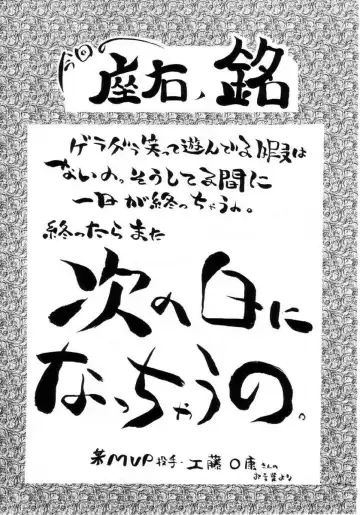 今回の
座右ノ銘
ゲラゲラ笑って遊んでる暇は
ないの。そうしてる間に
一日が終っちゃうの。
終ったらまた
次の日に
なっちゃうの。
※MVP投手・工藤○康さんの
お言葉より